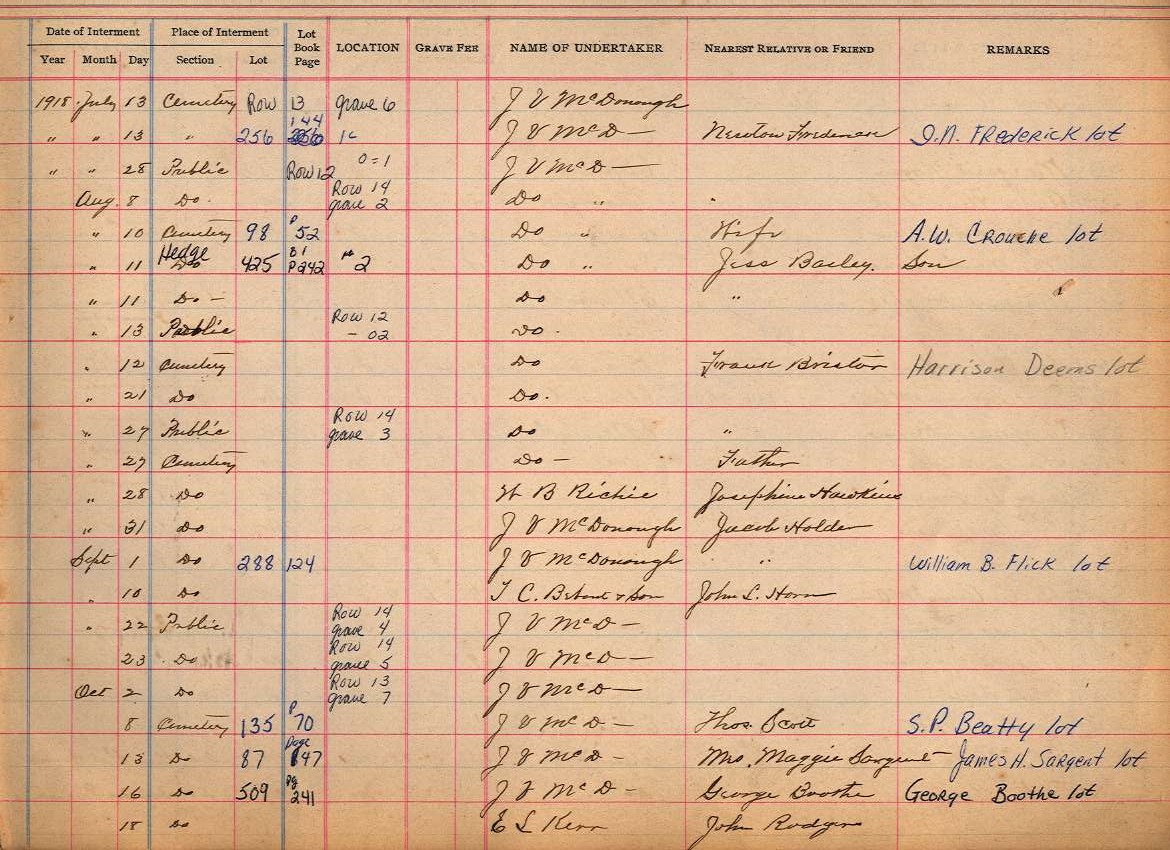 Date of Interment Place of Interment Lot Book Page LOCATION GRAVE FEE NAME OF UNDERTAKER NEAREST RELATIVE OR FRIEND REMARKS
Year Month Day Section Lot
1918 July 13 Cemetery Row 13 grave 6 J V McDonough
" " 13 " 256 144 J V McD— Newton I.N. FREdERICK lot
" " 28 Public Row 12 0=1 J V McD—
Aug. 8 Do. Row 14 grave 2 Do " "
" 10 Cemetery 98 P 52 Do " Wife A.W. CROUCHE lot
" 11 Hedge Do 425 B1 P242 2 Do " Jess Bailey. Son
" 11 Do — Do "
" 13 Public Row 12 – 02 Do.
" 12 Cemetery Do Frank Bristor Harrison Deems lot
" 21 Do Do.
" 27 Public Row 14 grave 3 Do "
" 27 Cemetery Do – Father
" 28 Do H B Richie Josephine Hawkins
" 31 Do J V McDonough Jacob Holder
Sept 1 Do 288 124 J V McDonough " William B. Flick lot
" 10 Do & Son John L. Horn
" 22 Public Row 14 grave 4 J V McD—
23 Do Row 14 grave 5 J V McD—
Oct 2 Do Row 13 grave 7 J V McD—
8 Cemetery 135 P 70 J V McD – Thos. Scott S.P. Beatty lot
13 Do 87 page 147 J V McD – Mrs. Maggie Sargent – James H. Sargent lot
16 Do 509 pg 241 J V McD – George Boothe George Boothe lot
18 Do E L Kerr John Rodgers